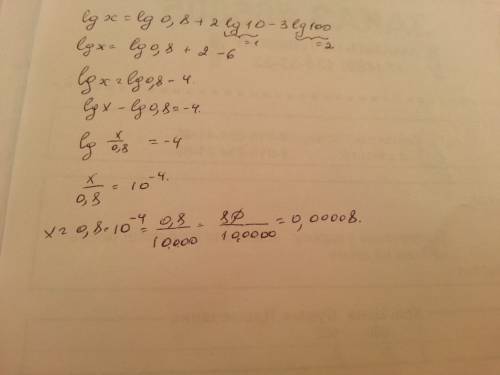 lg x = lg 0,8 + 2 lg 10 - 3 lg 100
=1 =2
lg x = lg 0,8 + 2 - 6
lg x = lg 0,8 - 4
lg x - lg 0,8 = -4.
lg x/0,8 = -4
x/0,8 = 10^-4.
x = 0,8 · 10^-4 = 0,8/10.000 = 8/10.0000 = 0,00008.